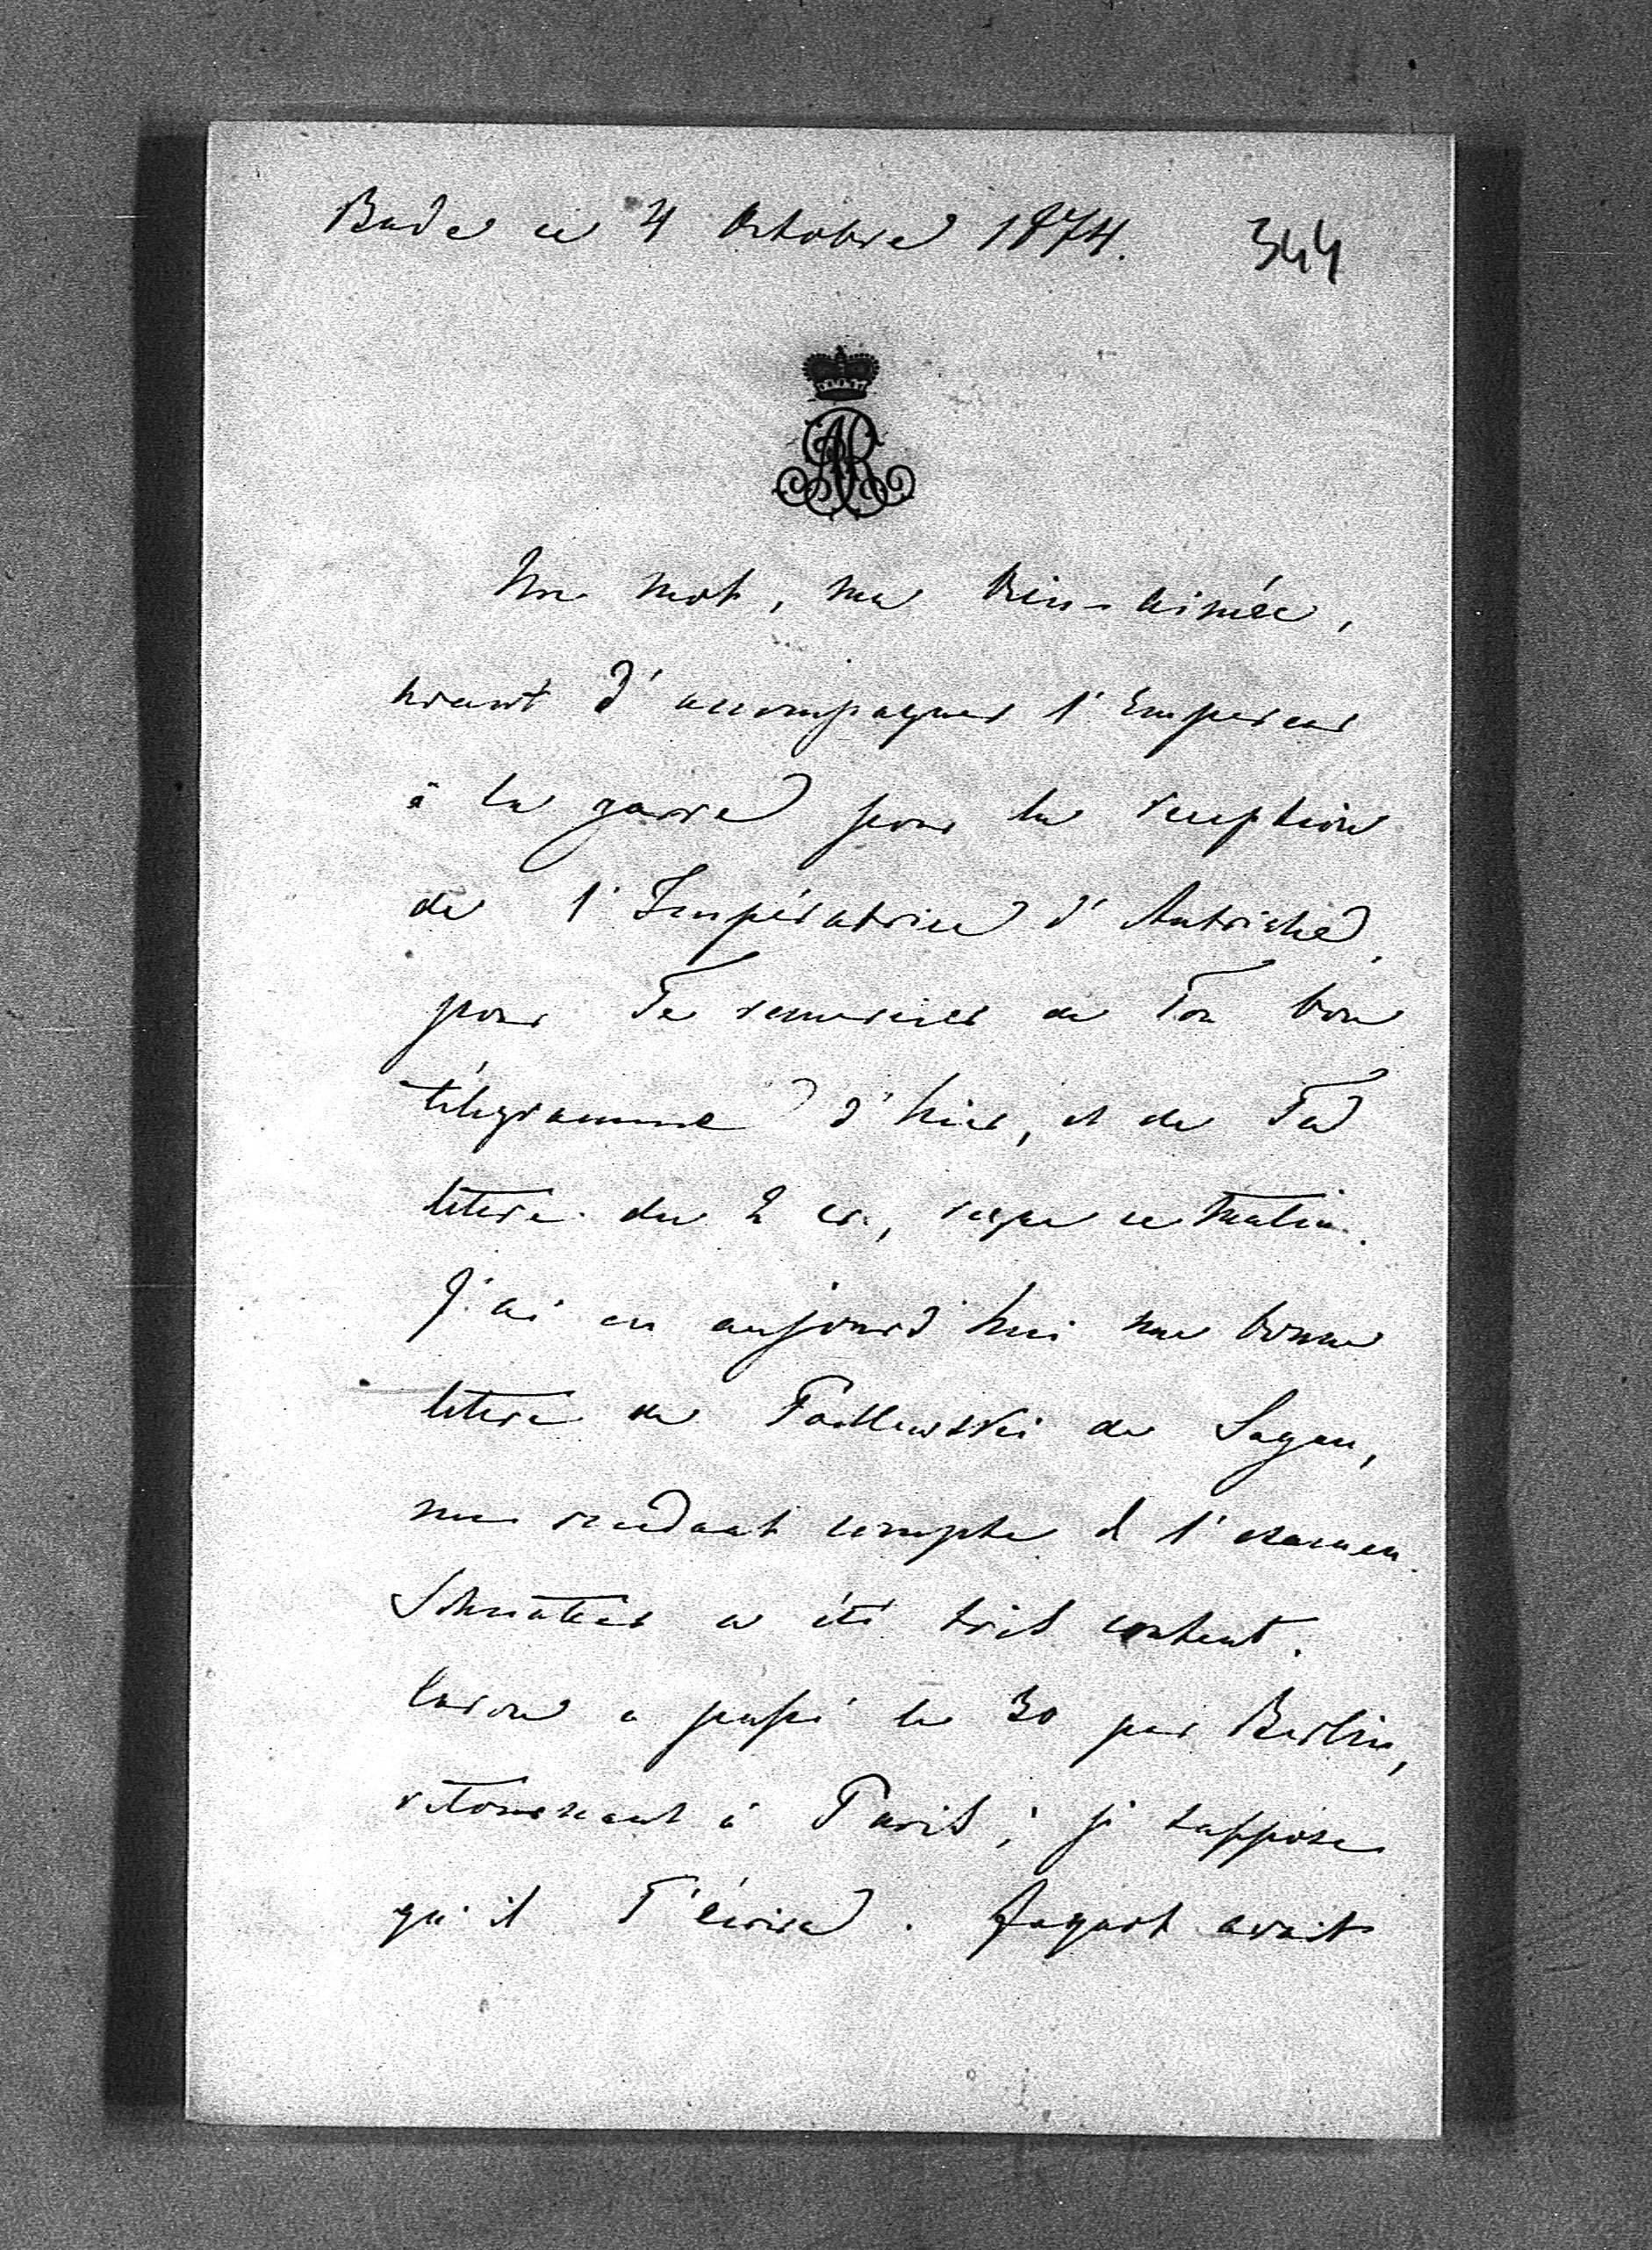 Bade ce 4 Octobre 1874. 344
AR
Un mot, ma bien-aimée,
avant d'accompagner l'Empereur
à la garre pour la reception
de l'Impératrice d'Autriche,
pour Te remercier de Ton bon
télégramme d'hier, et de Ta
lettre du 2 cr., reçue ce matin.
J'ai eu aujourd'hui une bonne
lettre de de Sagan,
me rendant compte de l'examen.
a été très content.
a passé le 30 par Berlin,
retournant à Paris; je suppose
qu'il T'écrira. avait